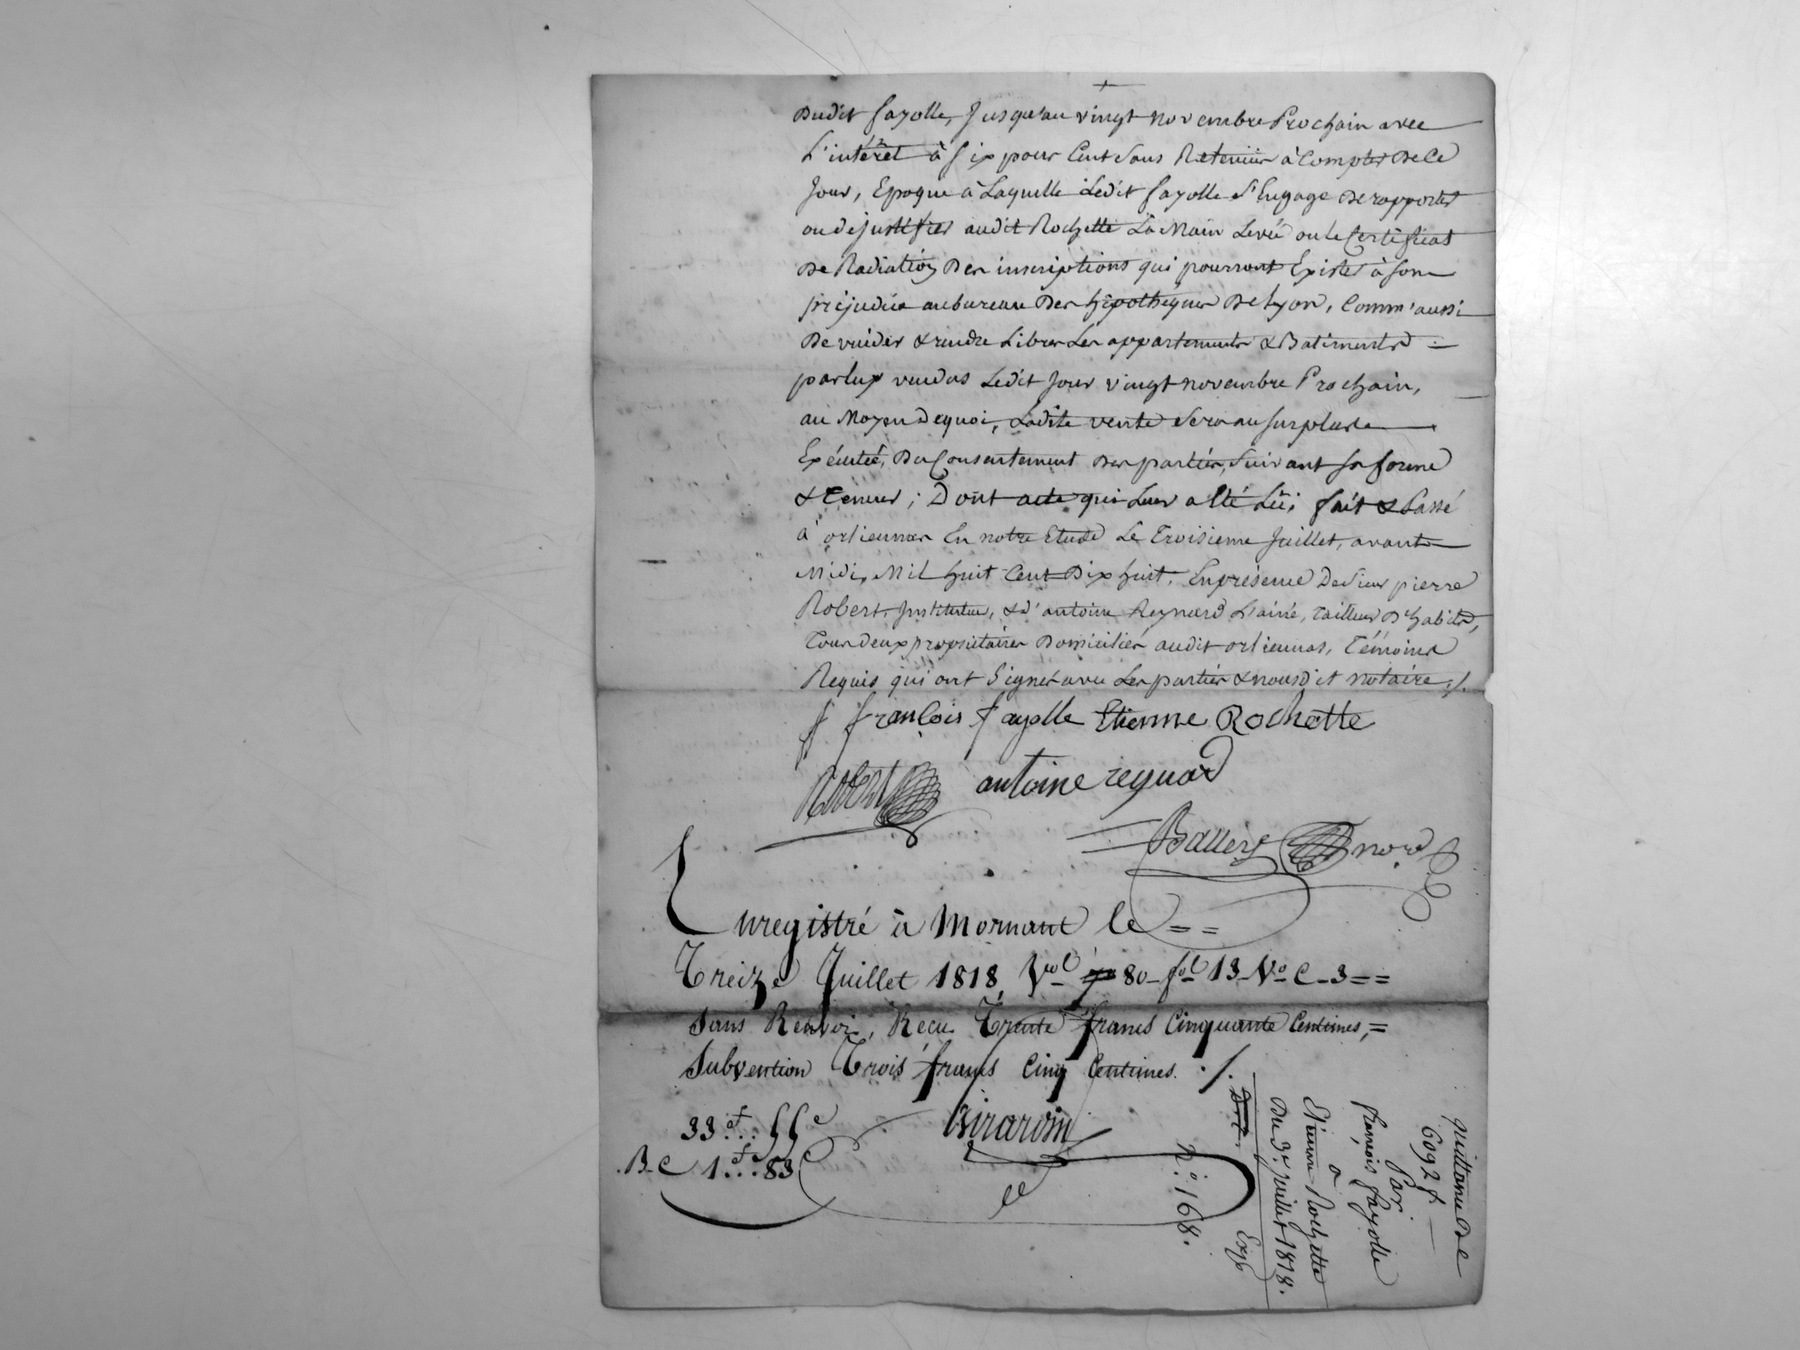 Dudit fayolle, Jusqu'au vingt novembre Prochain avec
L'intérêt à six pour Cent sans Retenüe à Compter de Ce
Jour, Epoque à Laquelle Ledit fayolle s'Engage de rapporter
ou de justifier audit Rochette La Main Levée ou le Certificat
De Radiation Des inscriptions qui pourront Exister à son
préjudice au bureau Des hipotheques De Lyon, Comm'aussi
De vuider & rendre Libres Les appartements & Batiments =
par lui vendus Ledit Jour vingt novembre Prochain,
au Moyen de quoi, Ladite vente sera au surplus
Exécutée, Du Consentement Des parties, suivant sa forme
& teneur; Dont acte qui Leur a Eté Lû; fait & Passé
à orliennas En notre Etude Le Troisieme Juillet, avant
Midi, Mil huit Cent Dix huit, En présence De sieur pierre
Robert, Instituteur, & d'antoine Reynard L'ainé, tailleur D'habits,
Tous deux propriétaires Domiciliés audit orliennas, Témoins
Requis qui ont Signés avec Les parties & nousdit notaire ./.
françois fayolle Etienne Rochette
Robert antoine reynard
Ballery no.re
Enregistré à Mornant le = =
Treize Juillet 1818, Vol 80 fol 13 Vo C 3 = =
Sans Renvoi, Recu Trente francs Cinquante Centimes, =
Subvention Trois francs Cinq Centimes. ./.
33 f .. 55 c
B. C 1 f .. 83
Girardin
quittance de
6092 f
Par
françois fayolle
a
Etienne Rochette
Du 3e Juillet 1818.
Exp
N.o 168.